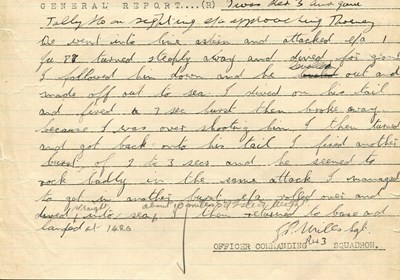 GENERAL REPORT....(R) I was Red 3 and gave
Tally Ho on sighting e/a approaching Thorney
We went into line astern and attacked e/a 1
Ju 88 turned steeply away and dived for ground
I followed him down and he out and
made off out to sea. I dived on his tail
and fired a sea burst then broke away
because I was over shooting him. I then turned
and got back onto his tail I fired another
burst of 2 to 3 secs and he seemed to
rock badly in the same attack I managed
to get in another burst e/a rolled over and
straight about 10 miles
dived into sea, I then returned to base and
landed at 1620
J.P. Mills Sgt.
Red 3
OFFICER COMMANDING SQUADRON.